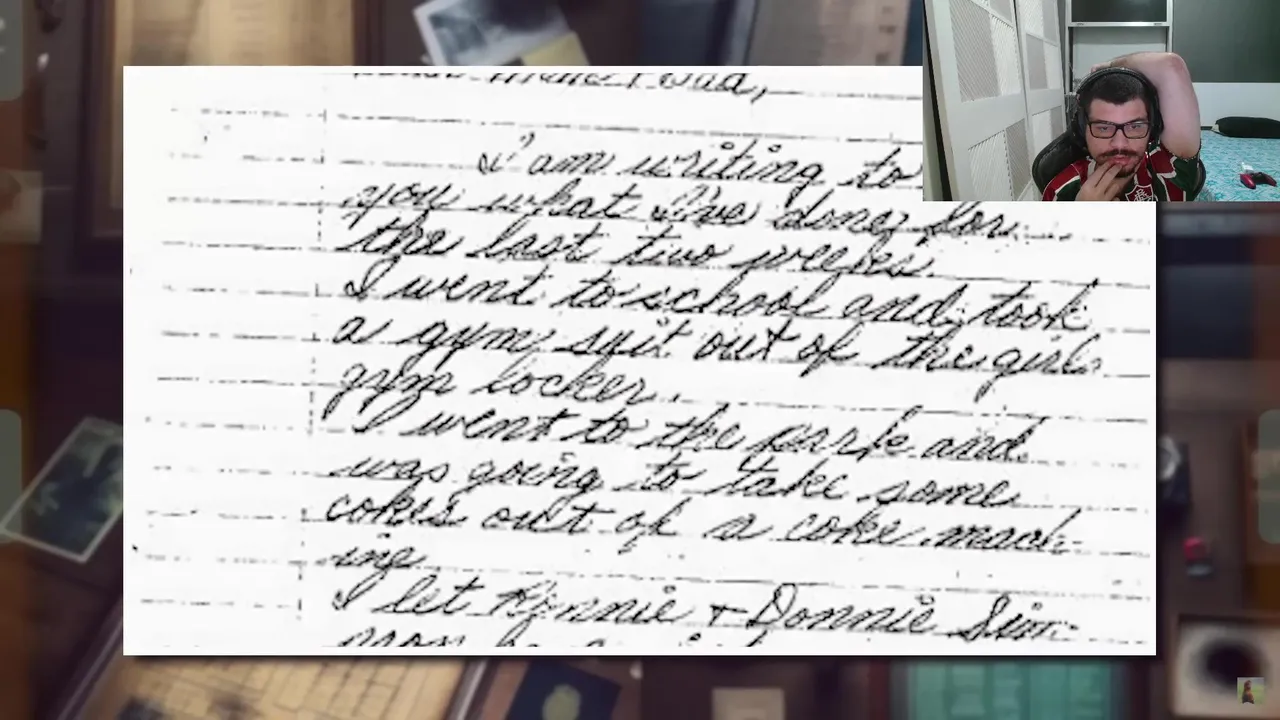 Dad,
I am writing to
you what I've done for
the last two weekes.
I went to school and took
a gym suit out of the girls
gym locker.
I went to the park and
was going to take some
cokes out of a coke mach-
ing
I let Ronnie + Donnie Sim-